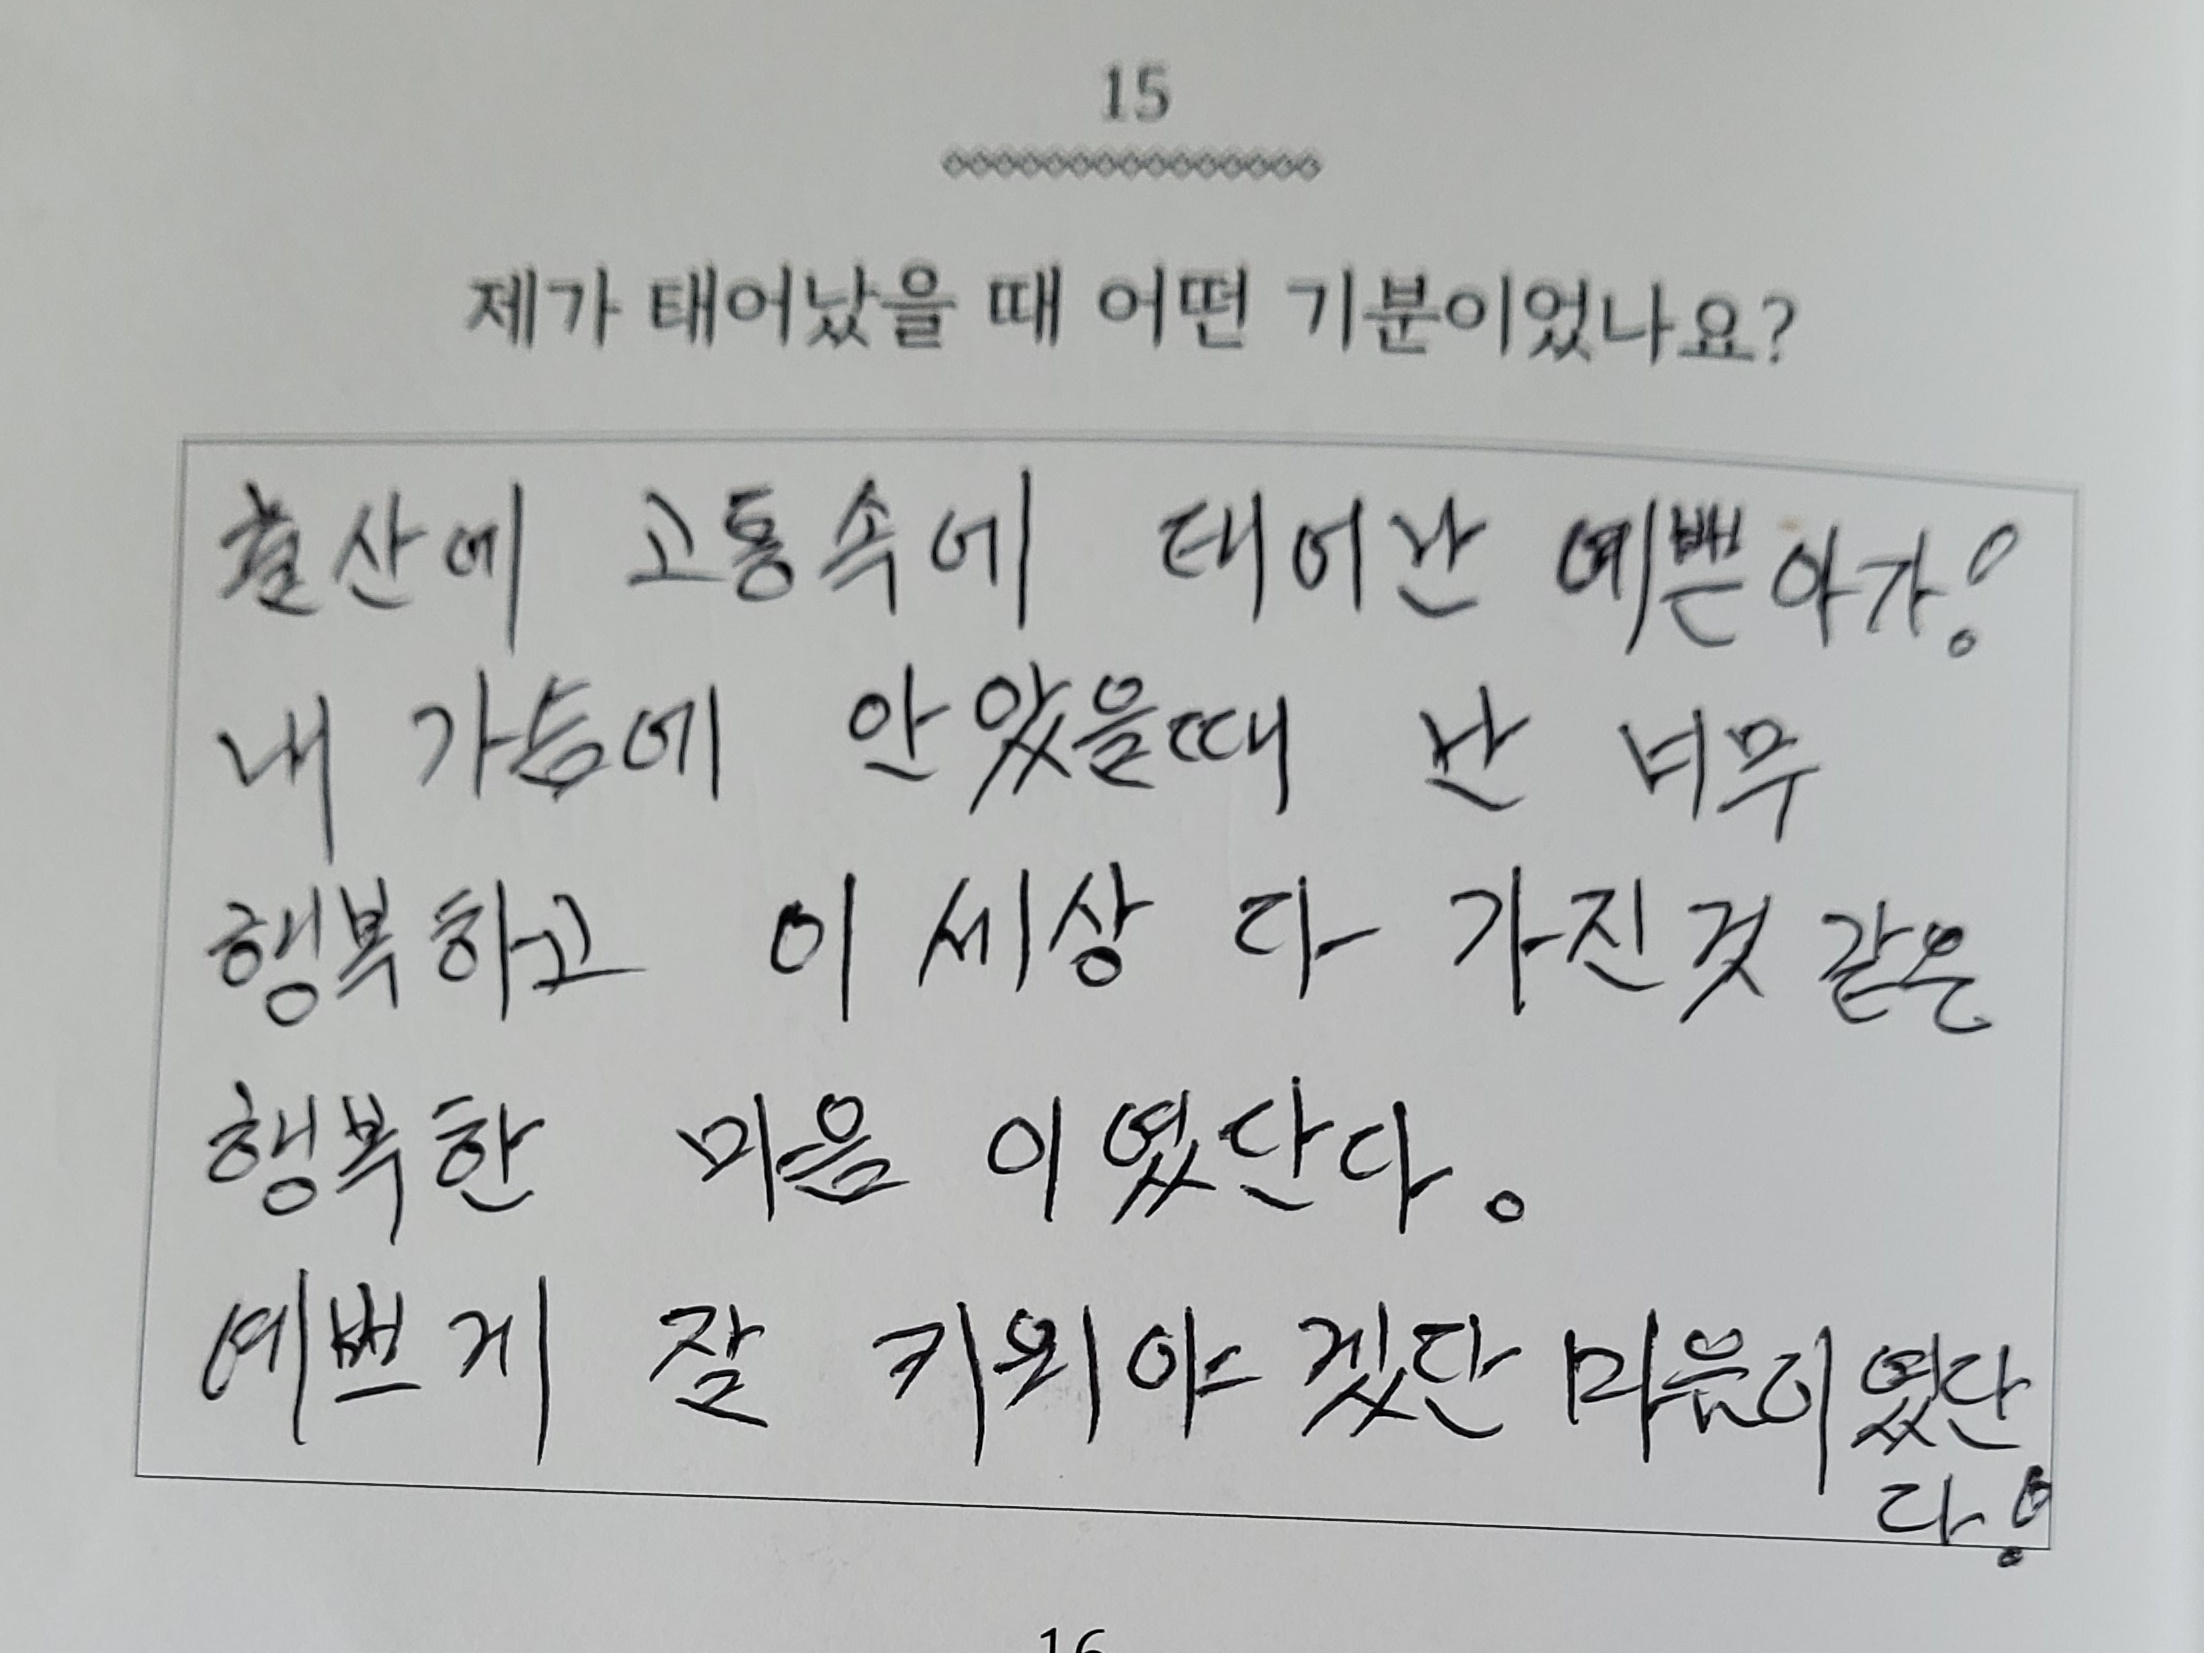 15
제가 태어났을 때 어떤 기분이었나요?
출산에 고통속에 태어난 예쁜아가!
내 가슴에 안았을때 난 너무
행복하고 이 세상 다 가진것 같은
행복한 마음 이였단다.
예쁘게 잘 키워야겠단 마음이였단
다!
16